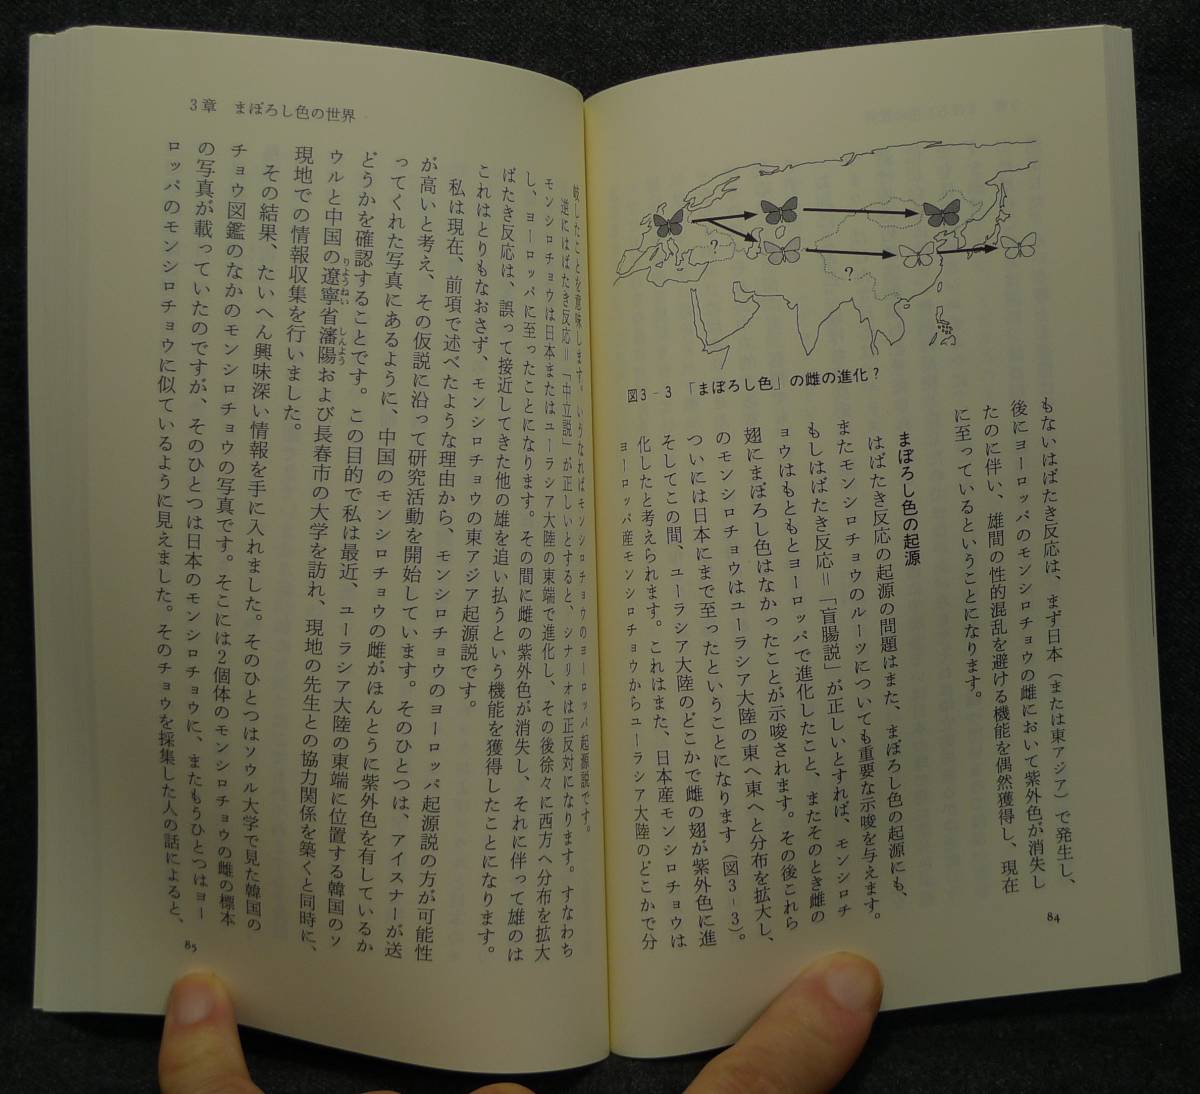 もないはばたき反応は、まず日本（または東アジア）で発生し、
後にヨーロッパのモンシロチョウの雌において紫外色が消失し
たのに伴い、雄間の性的混乱を避ける機能を偶然獲得し、現在
に至っているということになります。
まぼろし色の起源
はばたき反応の起源の問題はまた、まぼろし色の起源にも、
またモンシロチョウのルーツについても重要な示唆を与えます。
もしはばたき反応＝「盲腸説」が正しいとすれば、モンシロチ
ョウはもともとヨーロッパで進化したこと、またそのとき雌の
翅にまぼろし色はなかったことが示唆されます。その後これら
のモンシロチョウはユーラシア大陸の東へ東へと分布を拡大し、
ついには日本にまで至ったということになります（図3-3）。
そしてこの間、ユーラシア大陸のどこかで雌の翅が紫外色に進
化したと考えられます。これはまた、日本産モンシロチョウは
ヨーロッパ産モンシロチョウからユーラシア大陸のどこかで分
?
?
図3-3 「まぼろし色」の雌の進化？
84
3章　まぼろし色の世界
岐したことを意味します。いうなればモンシロチョウのヨーロッパ起源説です。
逆にはばたき反応＝「中立説」が正しいとすると、シナリオは正反対になります。すなわち
モンシロチョウは日本またはユーラシア大陸の東端で進化し、その後徐々に西方へ分布を拡大
し、ヨーロッパに至ったことになります。その間に雌の紫外色が消失し、それに伴って雄のは
ばたき反応は、誤って接近してきた他の雄を追い払うという機能を獲得したことになります。
これはとりもなおさず、モンシロチョウの東アジア起源説です。
私は現在、前項で述べたような理由から、モンシロチョウのヨーロッパ起源説の方が可能性
が高いと考え、その仮説に沿って研究活動を開始しています。そのひとつは、アイスナーが送
ってくれた写真にあるように、中国のモンシロチョウの雌がほんとうに紫外色を有しているか
どうかを確認することです。この目的で私は最近、ユーラシア大陸の東端に位置する韓国のソ
ウルと中国の遼寧省瀋陽および長春市の大学を訪れ、現地の先生との協力関係を築くと同時に、
りょうねい　しんよう
現地での情報収集を行いました。
その結果、たいへん興味深い情報を手に入れました。そのひとつはソウル大学で見た韓国の
チョウ図鑑のなかのモンシロチョウの写真です。そこには2個体のモンシロチョウの雌の標本
の写真が載っていたのですが、そのひとつは日本のモンシロチョウに、またもうひとつはヨー
ロッパのモンシロチョウに似ているように見えました。そのチョウを採集した人の話によると、
85